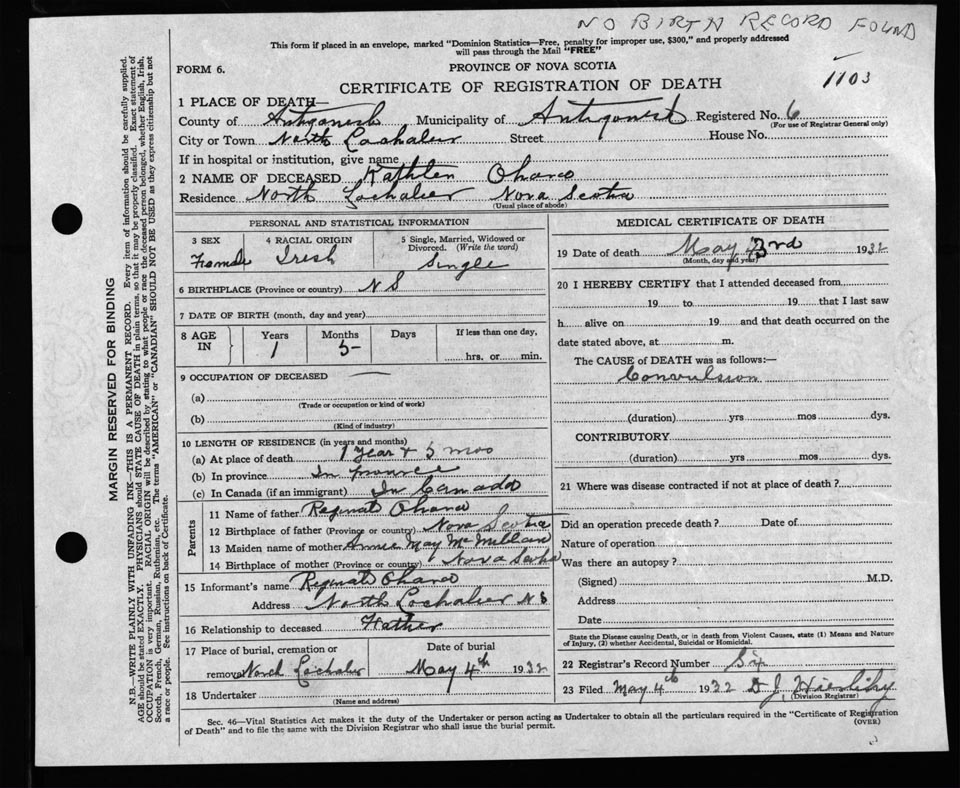 NO BIRTH RECORD FOUND
This form if placed in an envelope, marked "Dominion Statistics—Free, penalty for improper use, $300," and properly addressed
will pass through the Mail "FREE"
FORM 6.
PROVINCE OF NOVA SCOTIA
1103
CERTIFICATE OF REGISTRATION OF DEATH
1 PLACE OF DEATH—
County of Antigonish Municipality of Antigonish Registered No. 6
(For use of Registrar General only)
City or Town North Lochaber Street House No.
If in hospital or institution, give name
2 NAME OF DECEASED Kathlen Ohara
Residence North Lochaber Nova Scotia
(Usual place of abode)
PERSONAL AND STATISTICAL INFORMATION
3 SEX
Female
4 RACIAL ORIGIN
Irish
5 Single, Married, Widowed or
Divorced. (Write the word)
Single
6 BIRTHPLACE (Province or country) N S
7 DATE OF BIRTH (month, day and year)
8 AGE
IN
Years
1
Months
5
Days
If less than one day,
hrs. or min.
9 OCCUPATION OF DECEASED
(a)
(Trade or occupation or kind of work)
(b)
(Kind of industry)
10 LENGTH OF RESIDENCE (in years and months)
(a) At place of death 1 year + 5 mos
(b) In province In province
(c) In Canada (if an immigrant) In Canada
Parents
11 Name of father Reginald Ohara
12 Birthplace of father (Province or country) Nova Scotia
13 Maiden name of mother Annie May McMillan
14 Birthplace of mother (Province or country) Nova Scotia
15 Informant's name Reginald Ohara
Address North Lochaber N S
16 Relationship to deceased Father
17 Place of burial, cremation or
removal North Lochaber
Date of burial
May 4th 1932
18 Undertaker
(Name and address)
MEDICAL CERTIFICATE OF DEATH
19 Date of death May 3rd 1932
(Month, day and year)
20 I HEREBY CERTIFY that I attended deceased from
19 to 19 that I last saw
h alive on 19 and that death occurred on the
date stated above, at m.
The CAUSE of DEATH was as follows:—
Convulsion
(duration) yrs mos dys.
CONTRIBUTORY
(duration) yrs mos dys.
21 Where was disease contracted if not at place of death?
Did an operation precede death? Date of
Nature of operation
Was there an autopsy?
(Signed) M.D.
Address
Date
State the Disease causing Death, or in death from Violent Causes, state (1) Means and Nature
of Injury, (2) whether Accidental, Suicidal or Homicidal.
22 Registrar's Record Number Six
23 Filed May 4th 1932 D J
(Division Registrar)
Sec. 46—Vital Statistics Act makes it the duty of the Undertaker or person acting as Undertaker to obtain all the particulars required in the "Certificate of Registration
of Death" and to file the same with the Division Registrar who shall issue the burial permit.
(OVER)
MARGIN RESERVED FOR BINDING
N.B.—WRITE PLAINLY WITH UNFADING INK—THIS IS A PERMANENT RECORD. Every item of information should be carefully supplied.
AGE should be stated EXACTLY. PHYSICIANS should STATE CAUSE OF DEATH in plain terms, so that it may be properly classified. Exact statement of
OCCUPATION is very important. RACIAL ORIGIN will be described by stating to what people or race the deceased person belonged, whether English, Irish,
Scotch, French, German, Russian, Ruthenian, etc. The terms "AMERICAN" or "CANADIAN" SHOULD NOT BE USED as they express citizenship but not
a race or people. See instructions on back of Certificate.